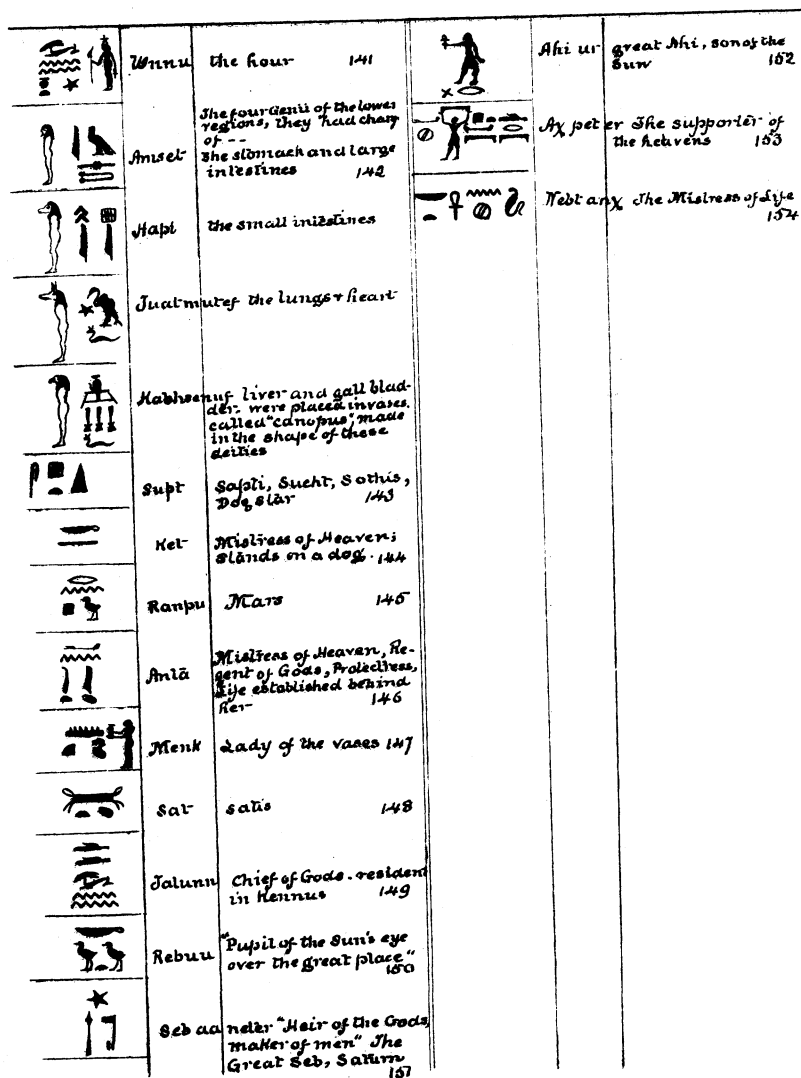 Unnu the hour 141
The four Genii of the lower
regions, they had charg
of --
Amset the stomach and large
intestines 142
Hapi the small intestines
Tuatmutef the lungs & heart
Kabhsenuf liver and gall blad-
der. were placed in vases
called "canopus", made
in the shape of these
deities
Supt Sapti, Sucht, Sothis,
Dog star 143
Ket Mistress of Heaven;
stands on a dog. 144
Ranpu Mars 145
Antā Mistress of Heaven, Re-
gent of Gods, Protectress,
Life established behind
her 146
Menk Lady of the vases 147
Sat satis 148
Tatunn Chief of Gods. resident
in Kennus 149
Rebuu "Pupil of the Sun's eye
over the great place"
150
Seb aa neter "Heir of the Gods,
maker of men" The
Great Seb, Saturn
151
Ahi ur great Ahi, son of the
Sun 152
Ax pet er The supporter of
the heavens 153
Nebt anx The Mistress of Life
154